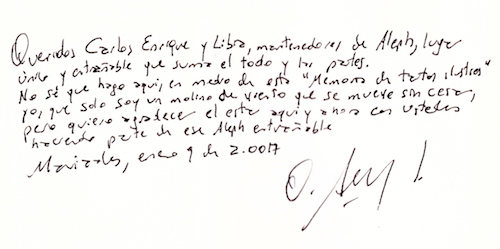 Queridos Carlos Enrique y Libia, mantenedores de Aleph, lugar
único y entrañable que suma el todo y las partes.
No sé que hago aquí, en medio de esta "Memoria de tantos ilustres"
yo, que solo soy un molino de viento que se mueve sin cesar,
pero quiero agradecer el estar aquí y ahora con ustedes
haciendo parte de ese Aleph entrañable
Manizales, enero 9 de 2.0017